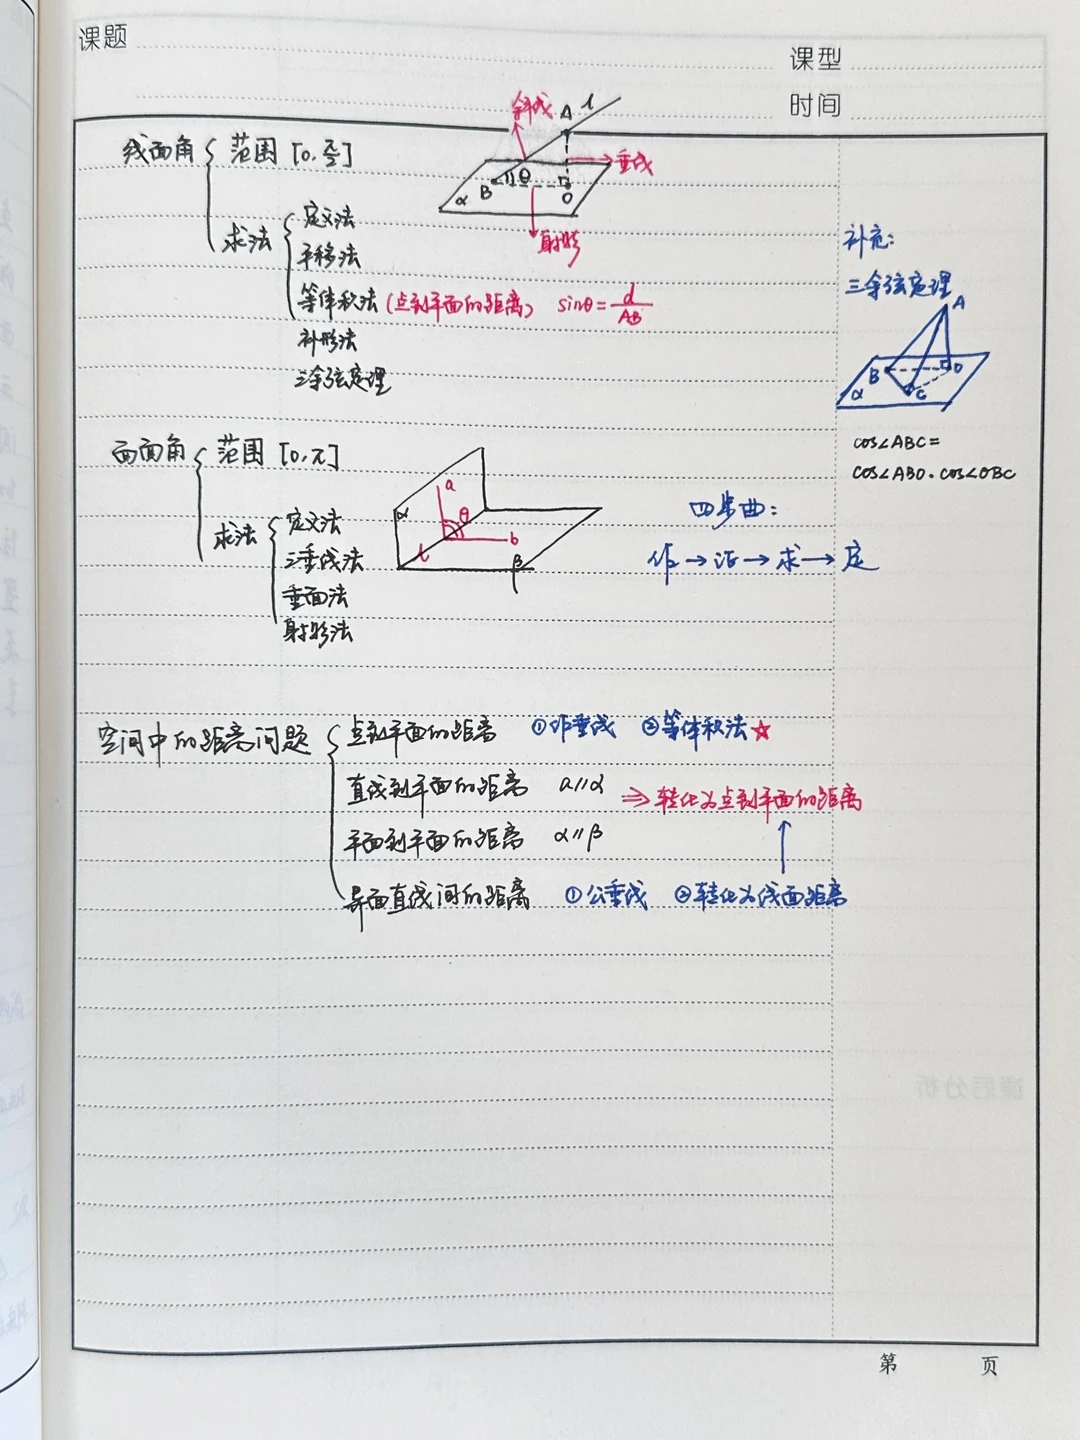 课题
课型
时间
线面角 范围 [0, π/2]
斜线 A l
垂线
α B θ O
射影
求法 定义法
平移法
等体积法 (点到平面的距离) sinθ = d/AB
补形法
三余弦定理
补充：
三余弦定理
A
B O
α C
cos∠ABC =
cos∠ABO · cos∠OBC
面面角 范围 [0, π]
求法 定义法
三垂线法
垂面法
射影法
α a θ
l b
β
四步曲：
作 → 证 → 求 → 定
空间中的距离问题
点到平面的距离 ①作垂线 ②等体积法☆
直线到平面的距离 a∥α ⇒ 转化为点到平面的距离
平面到平面的距离 α∥β
异面直线间的距离 ①公垂线 ②转化为线面距离
课后分析
第 页